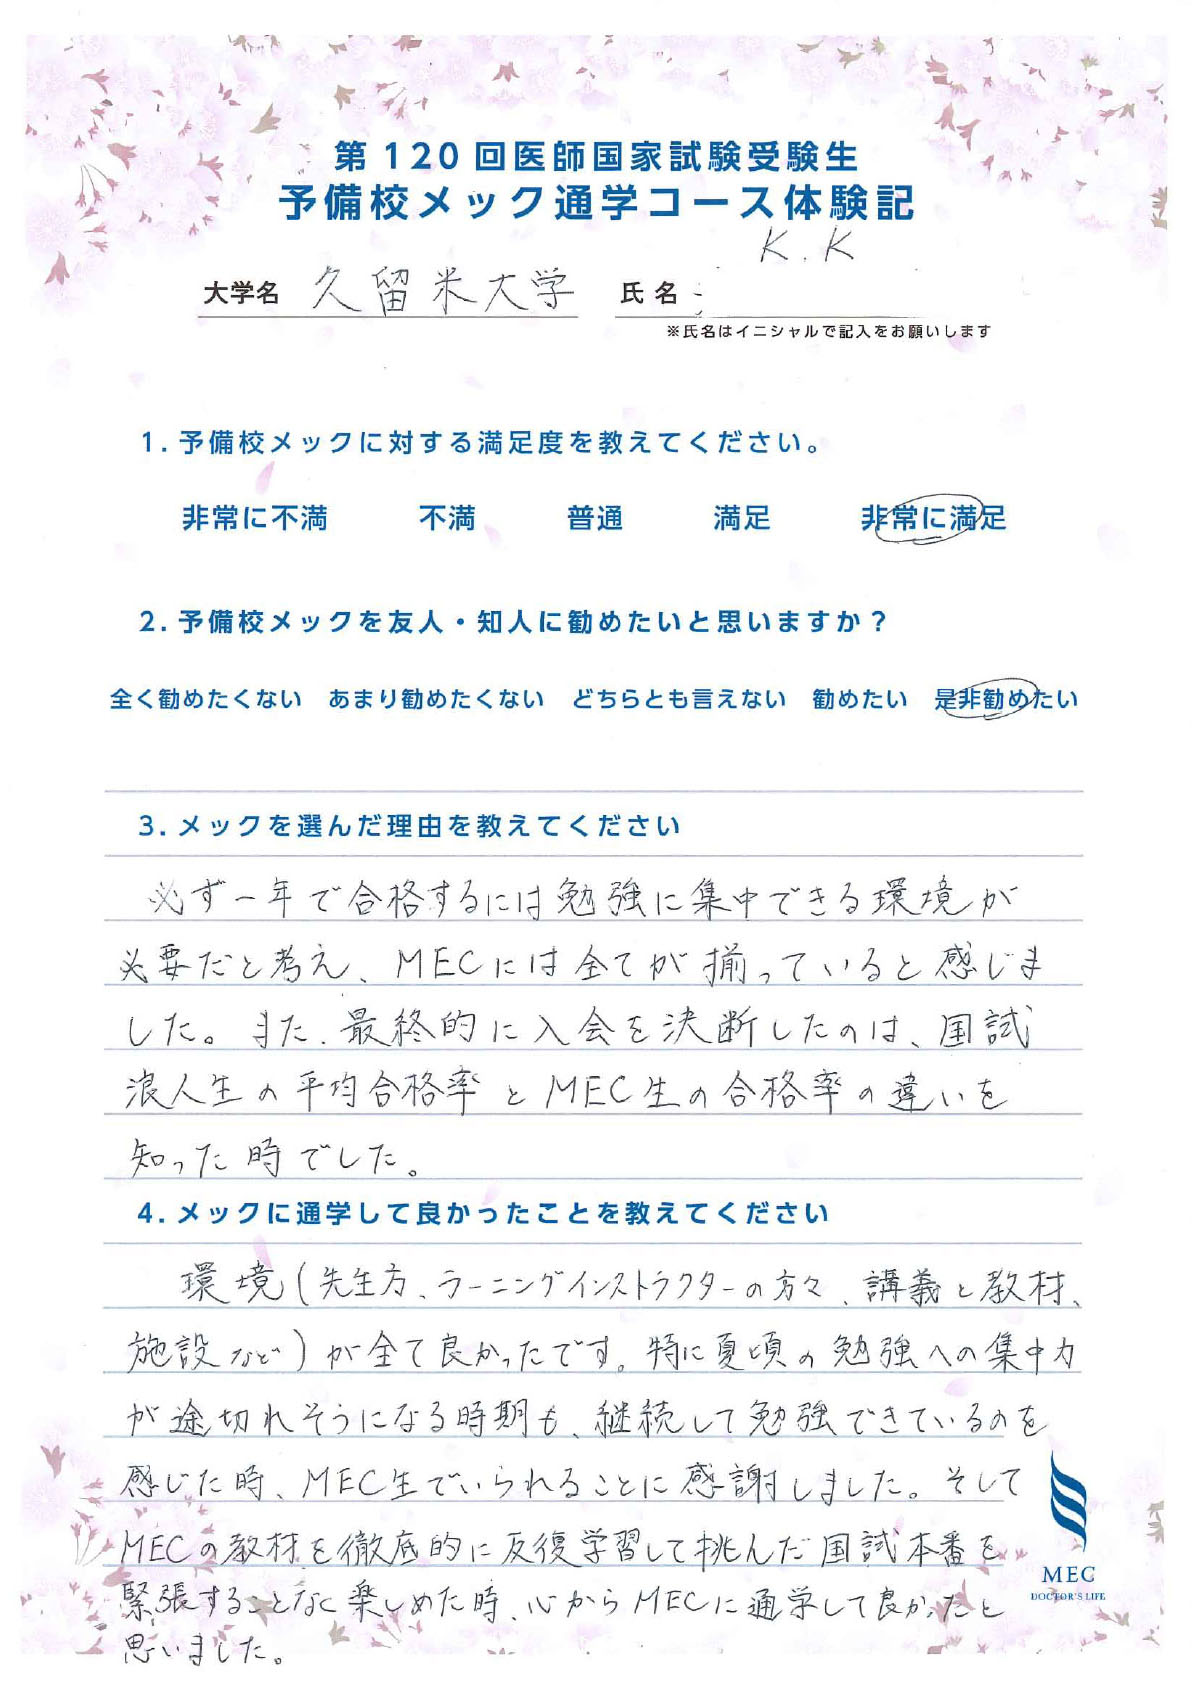 第120回医師国家試験受験生
予備校メック通学コース体験記
K.K
大学名 久留米大学 氏名
※氏名はイニシャルで記入をお願いします
1.予備校メックに対する満足度を教えてください。
非常に不満 不満 普通 満足 非常に満足
2.予備校メックを友人・知人に勧めたいと思いますか？
全く勧めたくない あまり勧めたくない どちらとも言えない 勧めたい 是非勧めたい
3.メックを選んだ理由を教えてください
必ず一年で合格するには勉強に集中できる環境が
必要だと考え、MECには全てが揃っていると感じま
した。また、最終的に入会を決断したのは、国試
浪人生の平均合格率とMEC生の合格率の違いを
知った時でした。
4.メックに通学して良かったことを教えてください
環境(先生方、ラーニングインストラクターの方々、講義と教材、
施設など)が全て良かったです。特に夏頃の勉強への集中力
が途切れそうになる時期も、継続して勉強できているのを
感じた時、MEC生でいられることに感謝しました。そして
MECの教材を徹底的に反復学習して挑んだ国試本番を
緊張することなく楽しめた時、心からMECに通学して良かったと
思いました。
MEC
DOCTOR'S LIFE